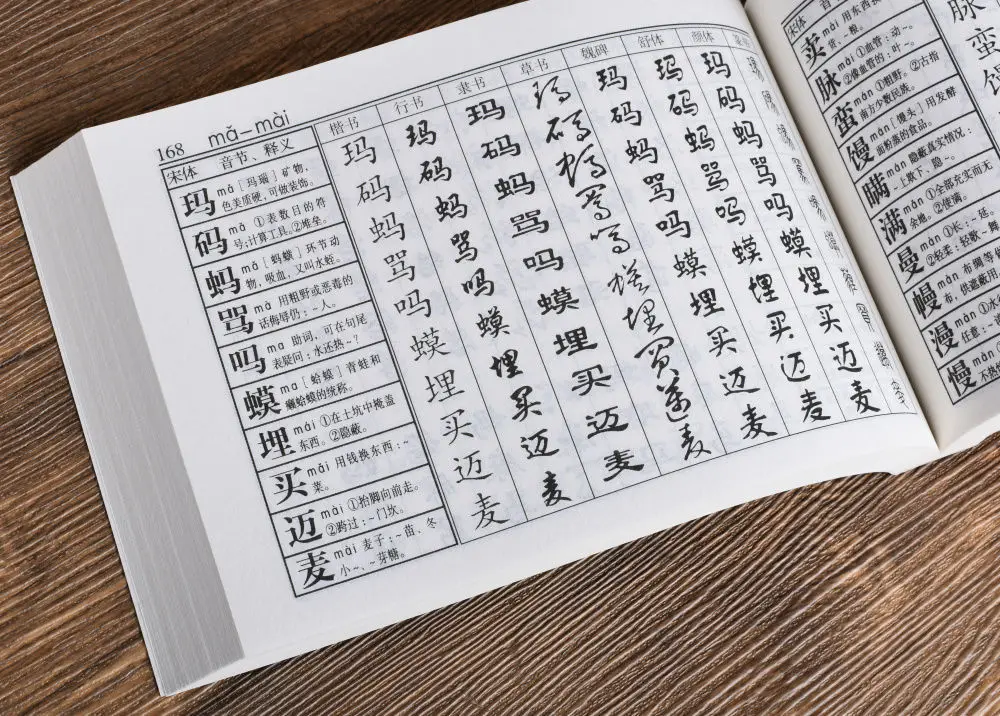 168 mǎ—mài
宋体 音节、释义 楷书 行书 隶书 草书 魏碑 舒体 颜体
玛 mǎ [玛瑙] 矿物,
色美质硬,可做装饰。
玛 玛 玛 玛 玛 玛 玛
码 mǎ ①表数目的符
号;计算工具。②堆垒。
码 码 码 码 码 码 码
蚂 mǎ [蚂蟥] 环节动
物,吸血,又叫水蛭。
蚂 蚂 蚂 蚂 蚂 蚂 蚂
骂 mà 用粗野或恶毒的
话侮辱仍:~人。
骂 骂 骂 骂 骂 骂 骂
吗 ma 助词,可在句尾
表疑问:水还热~?
吗 吗 吗 吗 吗 吗 吗
蟆 ma [蛤蟆] 青蛙和
癞蛤蟆的统称。
蟆 蟆 蟆 蟆 蟆 蟆 蟆
埋 mái ①在土坑中掩盖
东西。②隐蔽。
埋 埋 埋 埋 埋 埋 埋
买 mǎi 用钱换东西:~
菜。
买 买 买 買 买 买 买
迈 mài ①抬脚向前走。
②跨过:~门坎。
迈 迈 迈 邁 迈 迈 迈
麦 mài 麦子:~苗、冬
小~、~芽糖。
麦 麦 麦 麦 麦 麦 麦
宋体 音
卖 mài 用东西换
货:~粮。
脉 mài ①血管:动~。
②像血管的:叶~。
脉
蛮 mán ①粗野。②古指
南方少数民族。
蛮
馒 mán [馒头] 用发酵
面粉蒸的食品。
瞒 mán 隐蔽真实情况:
~上欺下、隐~。
满 mǎn ①全部充实而无
余地。②使满。
曼 màn ①长:~延。
②轻柔:轻歌~舞
幔 màn 布绸等
布,供遮蔽用
漫 màn ①水
任意:~
慢 màn
不热情